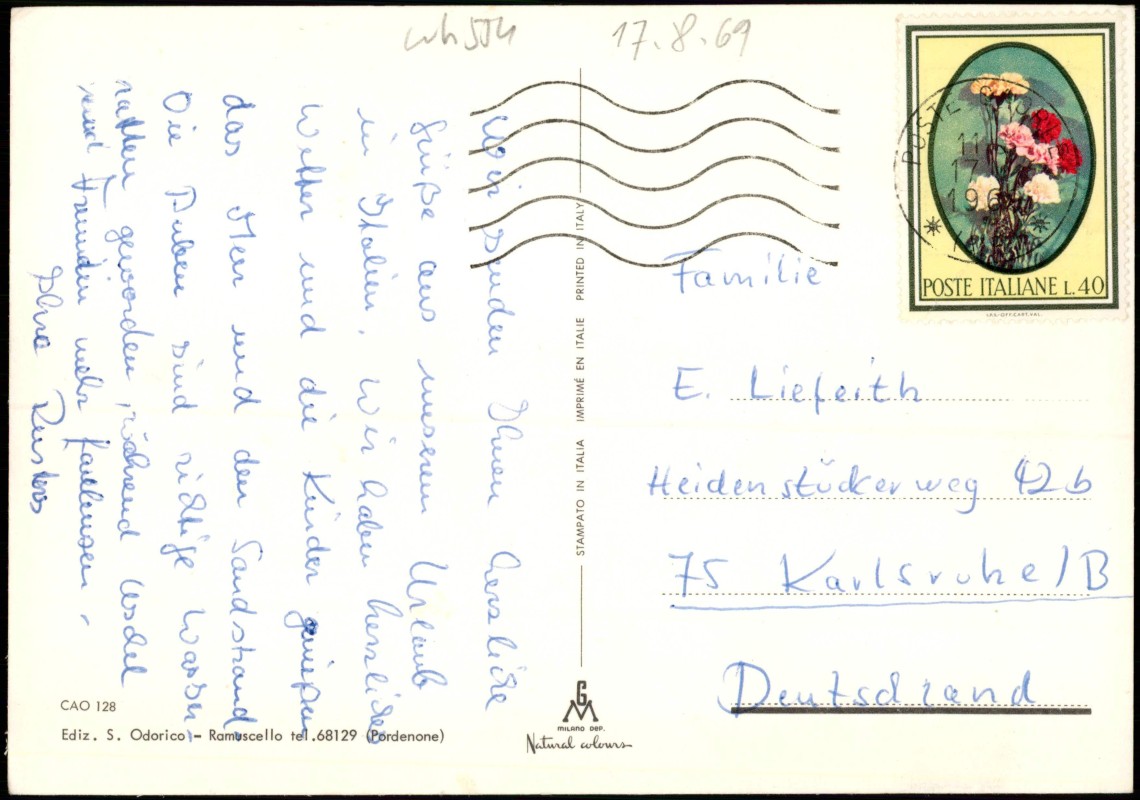 17.8.69
POSTE
11
17
196
POSTE ITALIANE L.40
I.P.S.-OFF.CART.VAL.
Wir senden Ihnen herzliche
Grüße aus unserem Urlaub
in Italien. Wir haben herrliches
Wetter und die Kinder genießen
das Meer und den Sandstrand.
Die Buben sind richtige Wasser-
ratten geworden, während
und Freundin mehr faulenzen.
Ihre
Familie
E. Liefeith
Heidenstückerweg 42b
75 Karlsruhe/B
Deutschland
STAMPATO IN ITALIA IMPRIMÉ EN ITALIE PRINTED IN ITALY
CAO 128
Ediz. S. Odorico - Ramuscello tel.68129 (Pordenone)
GM
MILANO DEP.
Natural colours